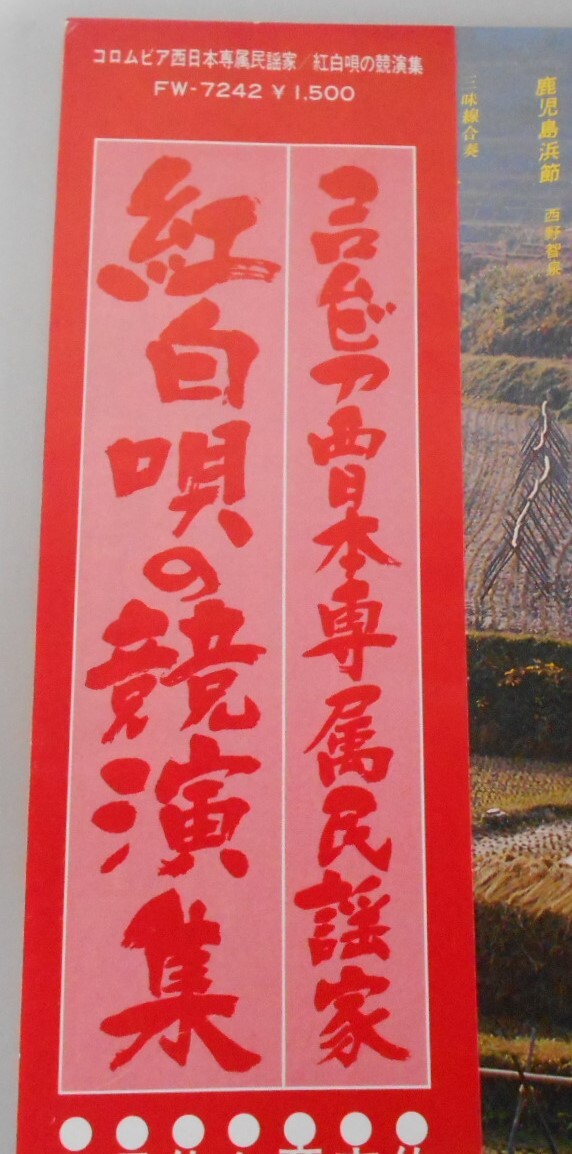 コロムビア西日本専属民謡家／紅白唄の競演集
FW-7242 ¥1,500
コロムビア西日本専属民謡家
紅白唄の競演集
鹿児島浜節 西野智泉
三味線合奏